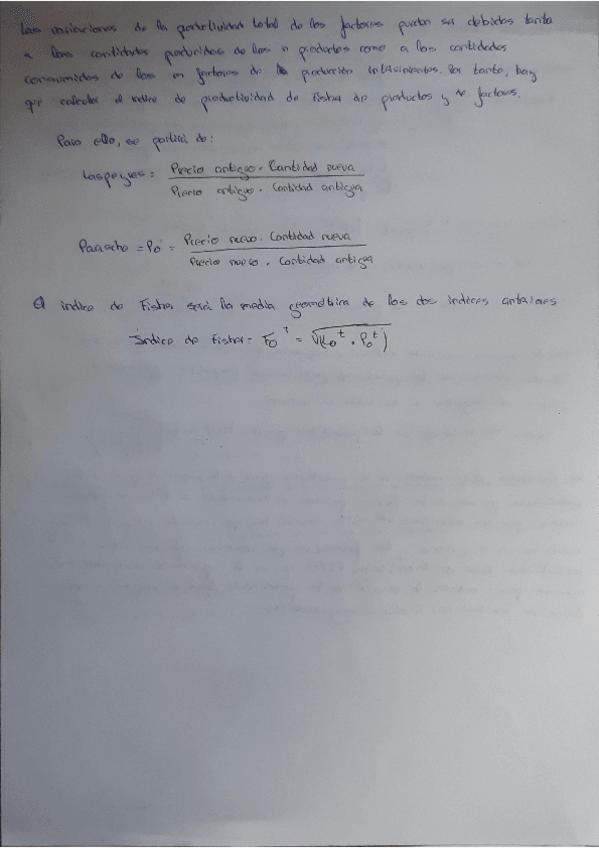 Las variaciones de la productividad total de los factores pueden ser debidas tanto
a las cantidades producidas de los n productos como a las cantidades
consumidas de los m factores de la producción intervinientes. Por tanto, hay
que calcular el índice de productividad de Fisher de productos y de factores.
Para ello, se partirá de:
Laspeyres = Precio antiguo · Cantidad nueva
Precio antiguo · Cantidad antigua
Paasche = P₀ᵗ = Precio nuevo · Cantidad nueva
Precio nuevo · Cantidad antigua
El índice de Fisher será la media geométrica de los dos índices anteriores
Índice de Fisher = F₀ᵗ = √(L₀ᵗ · P₀ᵗ)